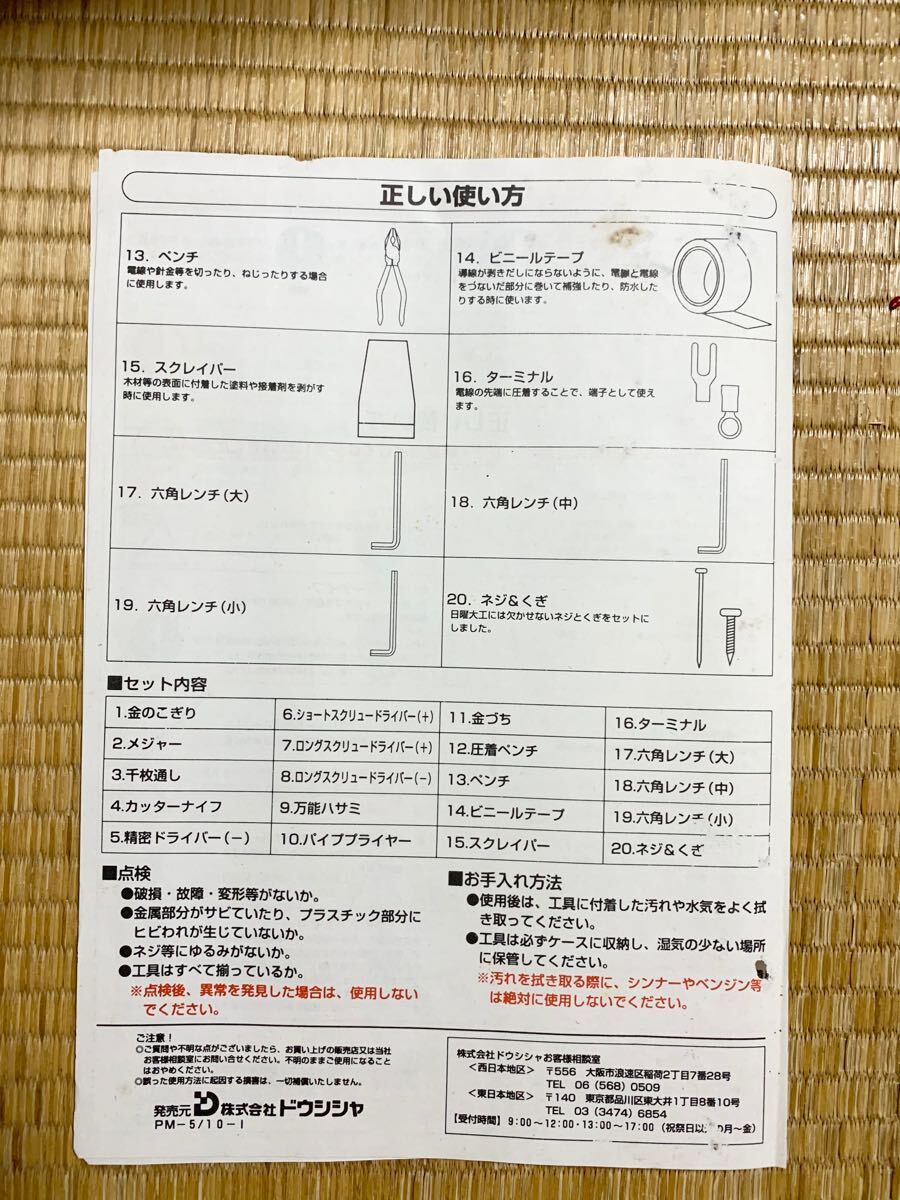 正しい使い方
13. ペンチ
電線や針金等を切ったり、ねじったりする場合
に使用します。
14. ビニールテープ
導線が剥きだしにならないように、電線と電線
をつないだ部分に巻いて補強したり、防水した
りする時に使います。
15. スクレイパー
木材等の表面に付着した塗料や接着剤を剥がす
時に使用します。
16. ターミナル
電線の先端に圧着することで、端子として使え
ます。
17. 六角レンチ(大)
18. 六角レンチ(中)
19. 六角レンチ(小)
20. ネジ&くぎ
日曜大工には欠かせないネジとくぎをセットに
しました。
■セット内容
1.金のこぎり 6.ショートスクリュードライバー(+) 11.金づち 16.ターミナル
2.メジャー 7.ロングスクリュードライバー(+) 12.圧着ペンチ 17.六角レンチ(大)
3.千枚通し 8.ロングスクリュードライバー(−) 13.ペンチ 18.六角レンチ(中)
4.カッターナイフ 9.万能ハサミ 14.ビニールテープ 19.六角レンチ(小)
5.精密ドライバー(−) 10.パイププライヤー 15.スクレイパー 20.ネジ&くぎ
■点検
●破損・故障・変形等がないか。
●金属部分がサビていたり、プラスチック部分に
ヒビわれが生じていないか。
●ネジ等にゆるみがないか。
●工具はすべて揃っているか。
※点検後、異常を発見した場合は、使用しない
でください。
■お手入れ方法
●使用後は、工具に付着した汚れや水気をよく拭
き取ってください。
●工具は必ずケースに収納し、湿気の少ない場所
に保管してください。
※汚れを拭き取る際に、シンナーやベンジン等
は絶対に使用しないでください。
ご注意!
◎ご質問や不明な点がございましたら、お買い上げの販売店又は当社
お客様相談室にお問い合せください。不明のままご使用になること
はおやめください。
◎誤った使用方法に起因する損害は、一切補償いたしません。
発売元 株式会社ドウシシャ
PM-5/10-1
株式会社ドウシシャお客様相談室
<西日本地区> 〒556 大阪市浪速区稲荷2丁目7番28号
TEL 06(568)0509
<東日本地区> 〒140 東京都品川区東大井1丁目8番10号
TEL 03(3474)6854
【受付時間】 9:00〜12:00・13:00〜17:00 (祝祭日以 月〜金)